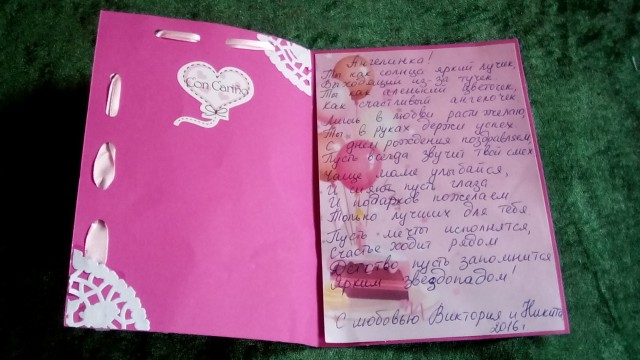 Con Cariño
Ангелинка!
Ты как солнца яркий лучик,
Выходящий из-за тучек.
Ты как аленький цветочек,
Как счастливый ангелочек
Лишь в любви расти желаю,
Ты в руках держи успех
С днём рождения поздравляем,
Пусть всегда звучит твой смех
Чаще маме улыбайся,
И сияют пусть глаза
И подарков пожелаем
Только лучших для тебя
Пусть мечты исполнятся,
Счастье ходит рядом
Детство пусть запомнится
Ярким звездопадом!
С любовью Виктория и Никита
2016г